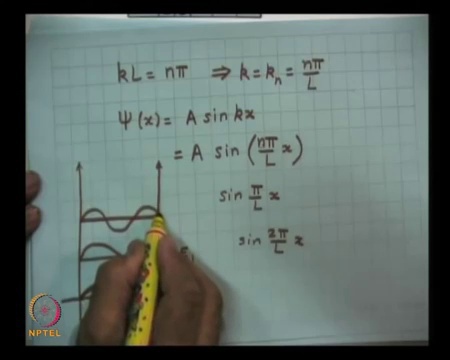 kL = nπ ⇒ k = kₙ = nπ/L
Ψ(x) = A sin kx
= A sin (nπ/L x)
sin π/L x
sin 2π/L x
NPTEL